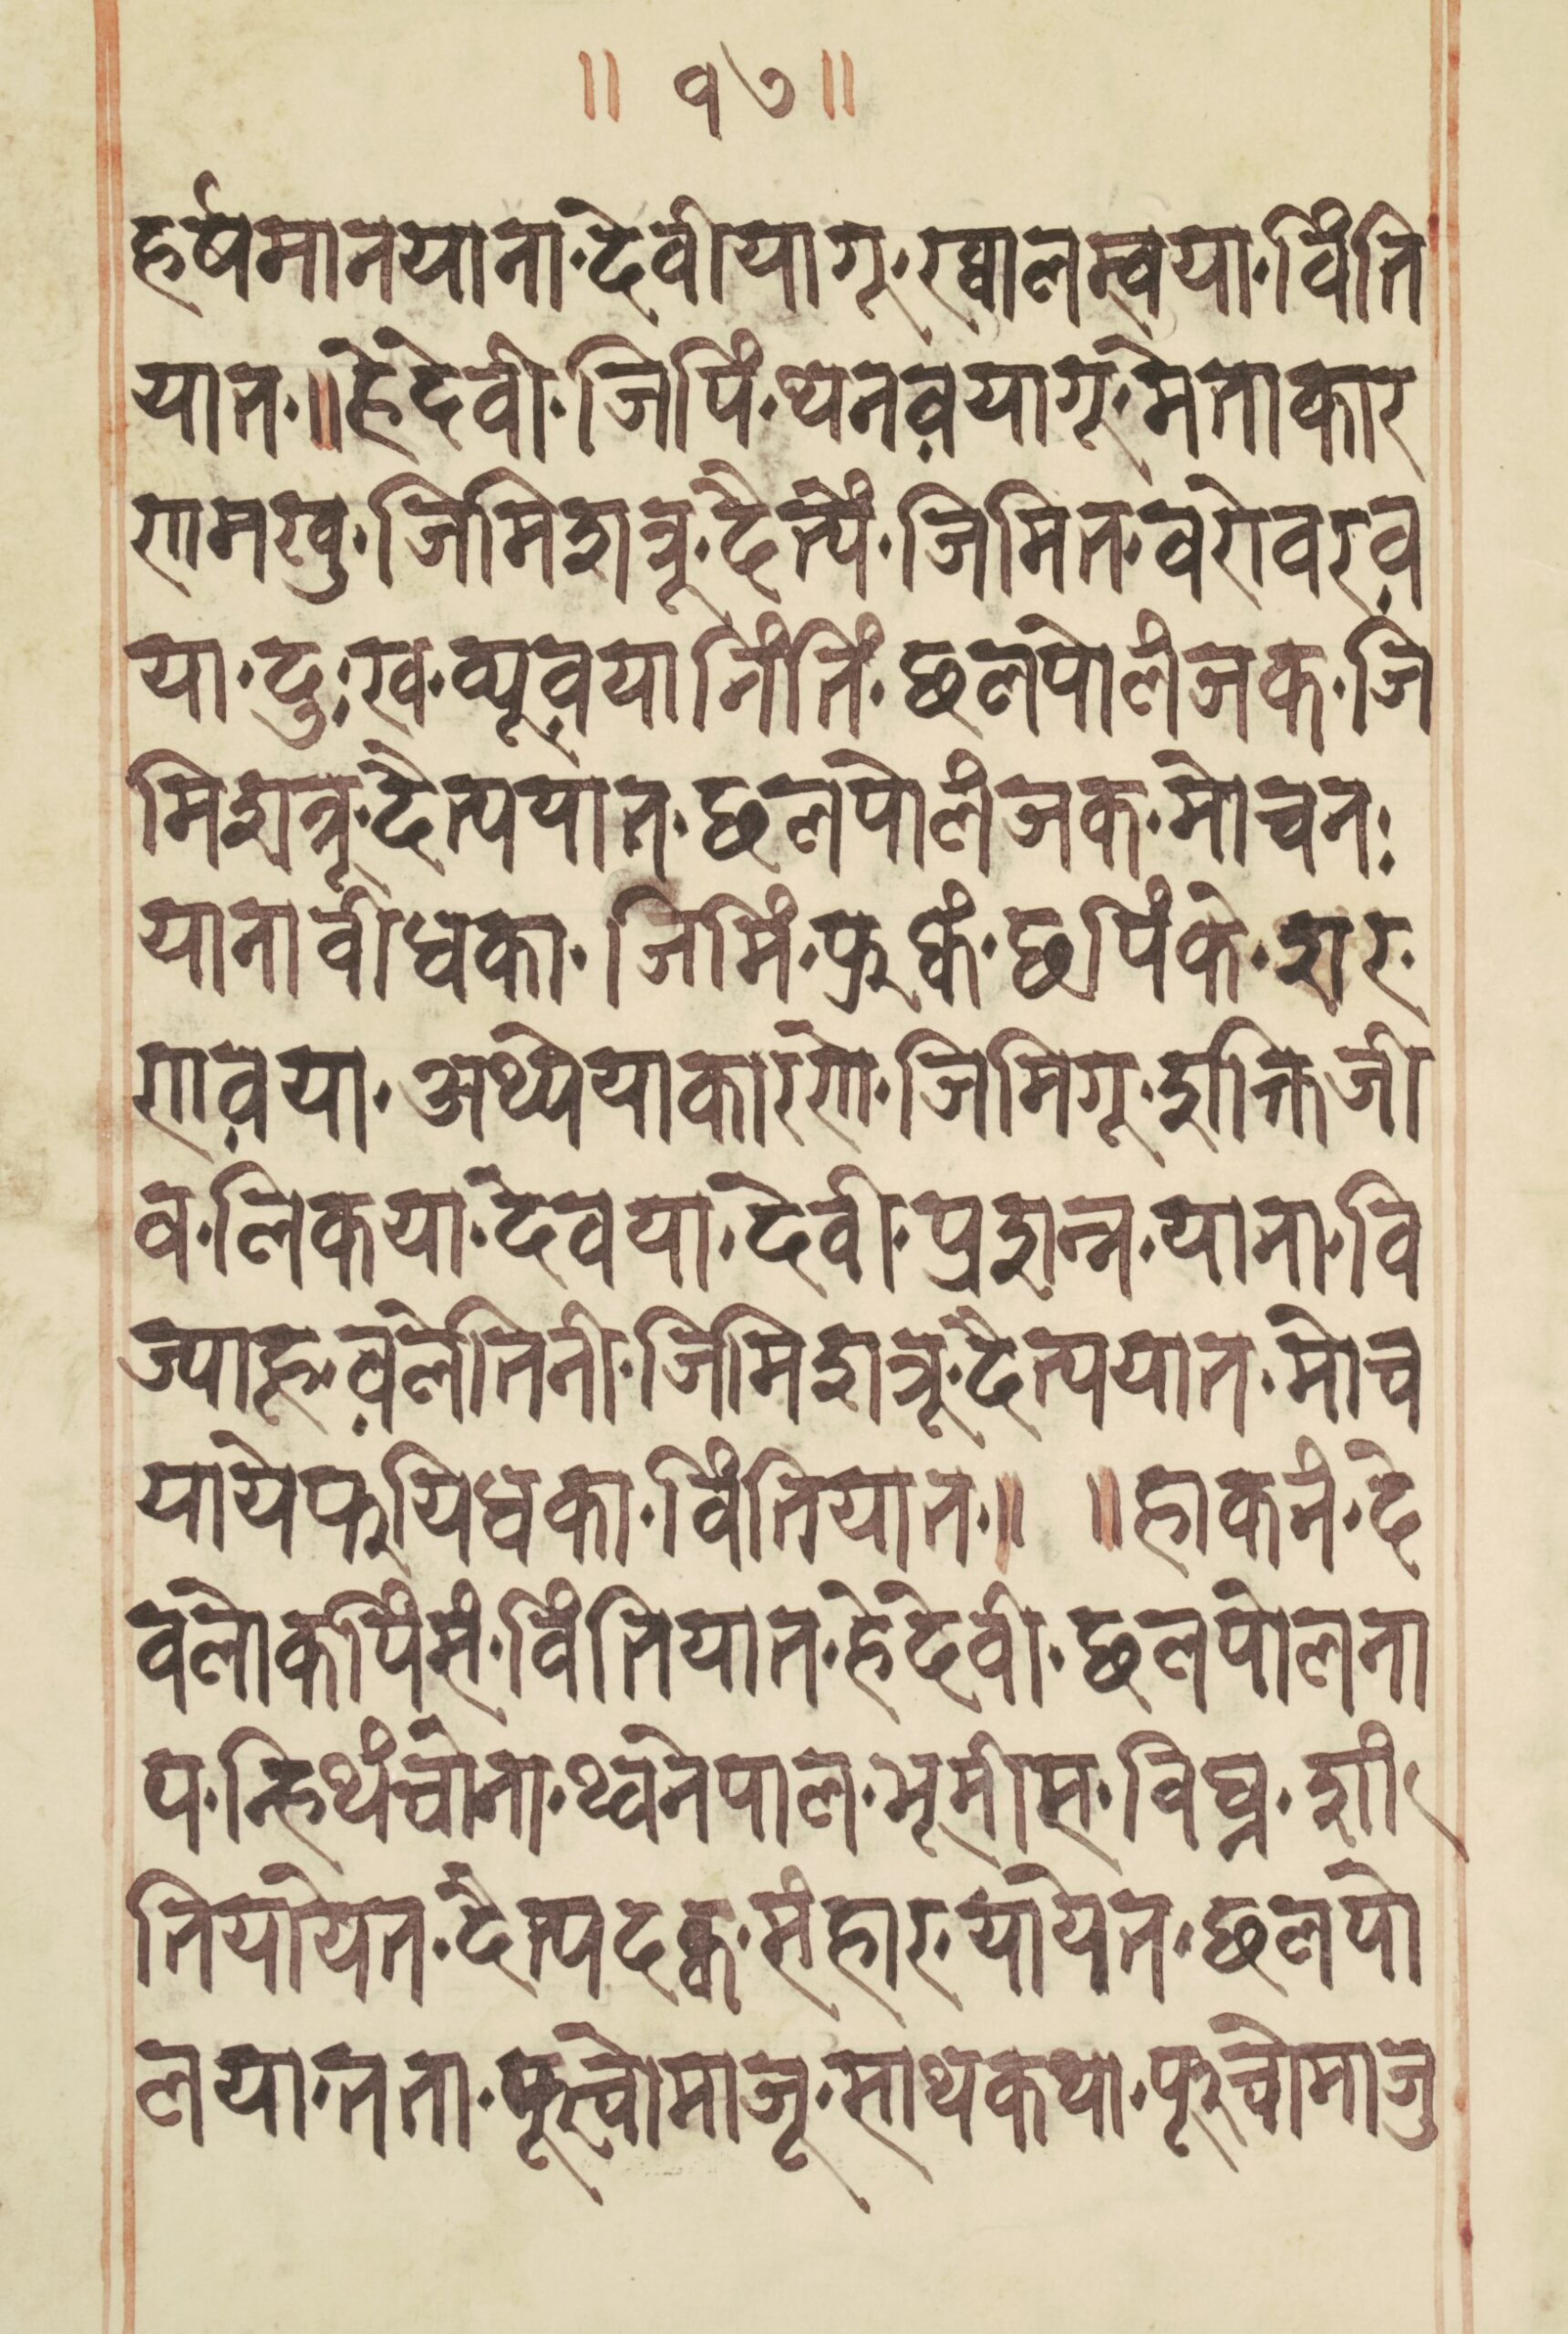 ॥ १७ ॥
हर्षमानयाना·देवीयागू·रव्वालस्वया·विंति
यात·॥हेदेवी·जिपिं·थनव़यागू·मेताकार
णामखु·जिमिशत्रू·दैत्यं·जिमित·बरोबरव़
या·दुःख·ब्यूव़यानिंतिं·छलपोलंजक·जि
मिशत्रू·दैत्ययात·छलपोलंजक·मोचनः
यानावीधका·जिमिं·फुक्कं·छपिंके·शर
णाव़या·अथ्येयाकारणो·जिमिगू·शक्तिजी
व·लिकया·देवया·देवी·प्रशन्न·याना·वि
ज्याहूव़लेतिनी·जिमिशत्रू·दैत्ययात·मोच
यायेफुयिधका·विंतियात·॥ ॥हाकनं·दे
वलोकपिंसं·विंतियात·हेदेवी·छलपोलना
प·न्हिथंचोना·थ्वनेपाल·भूमीस·विघ्न·शां
तियायेत·दैत्यदक्व·संहार·यायेत·छलपो
लया·तता·फूचोमाजू·साथकथा·फूचोमाजु